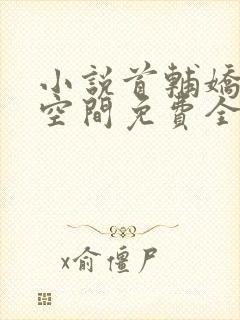 小說首輔嬌
空間免費全
x俞僵尸